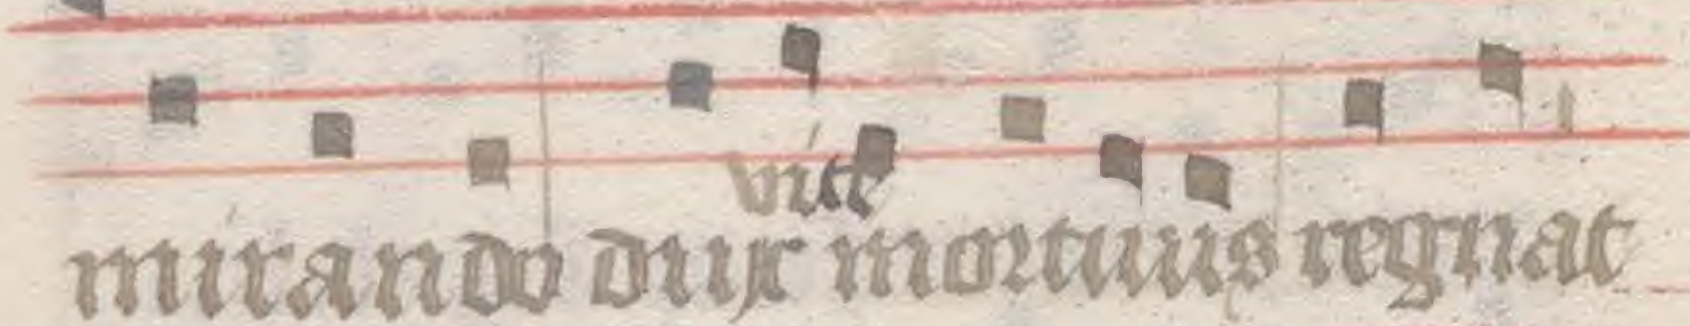 vite
mirando dux mortuus regnat